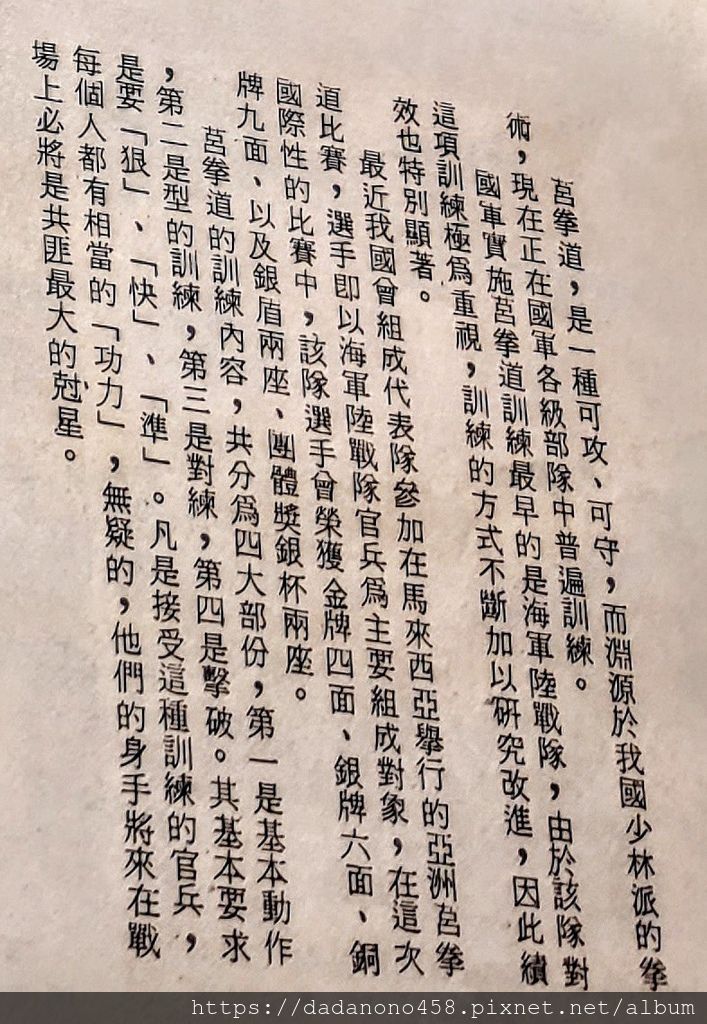 莒拳道，是一種可攻、可守，而淵源於我國少林派的拳
術，現在正在國軍各級部隊中普遍訓練。
國軍實施莒拳道訓練最早的是海軍陸戰隊，由於該隊對
這項訓練極爲重視，訓練的方式不斷加以研究改進，因此績
效也特別顯著。
最近我國曾組成代表隊參加在馬來西亞舉行的亞洲莒拳
道比賽，選手即以海軍陸戰隊官兵爲主要組成對象，在這次
國際性的比賽中，該隊選手曾榮獲金牌四面、銀牌六面、銅
牌九面、以及銀盾兩座、團體獎銀杯兩座。
莒拳道的訓練內容，共分爲四大部份，第一是基本動作
，第二是型的訓練，第三是對練，第四是擊破。其基本要求
是要「狠」、「快」、「準」。凡是接受這種訓練的官兵，
每個人都有相當的「功力」，無疑的，他們的身手將來在戰
場上必將是共匪最大的尅星。
https://dadanono458.pixnet.net/album